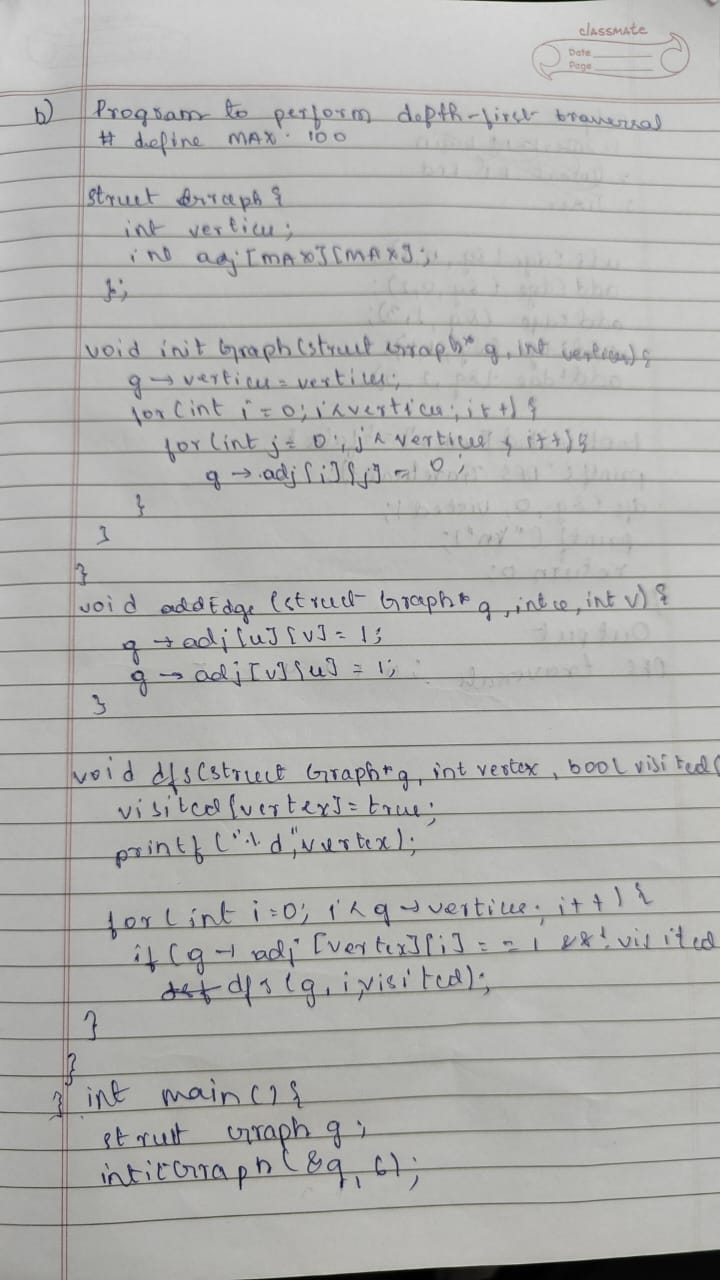 classmate
Date
Page
b) Program to perform depth-first traversal
# define MAX 100
struct Graph {
int vertices;
int adj[MAX][MAX];
};
void init Graph(struct Graph* g, int vertices) {
g → vertices = vertices;
for (int i = 0; i < vertices; i++) {
for (int j = 0; j < vertices; i++) {
g → adj[i][j] = 0;
}
}
}
void addEdge (struct Graph* g, int u, int v) {
g → adj[u][v] = 1;
g → adj[v][u] = 1;
}
void dfs(struct Graph* g, int vertex, bool visited[
visited[vertex] = true;
printf ("%d", vertex);
for (int i=0; i < g → vertices; i++) {
if (g → adj [vertex][i] == 1 && ! visited
dfs (g, i, visited);
}
}
} int main() {
struct Graph g;
intitGraph (&g, 6);